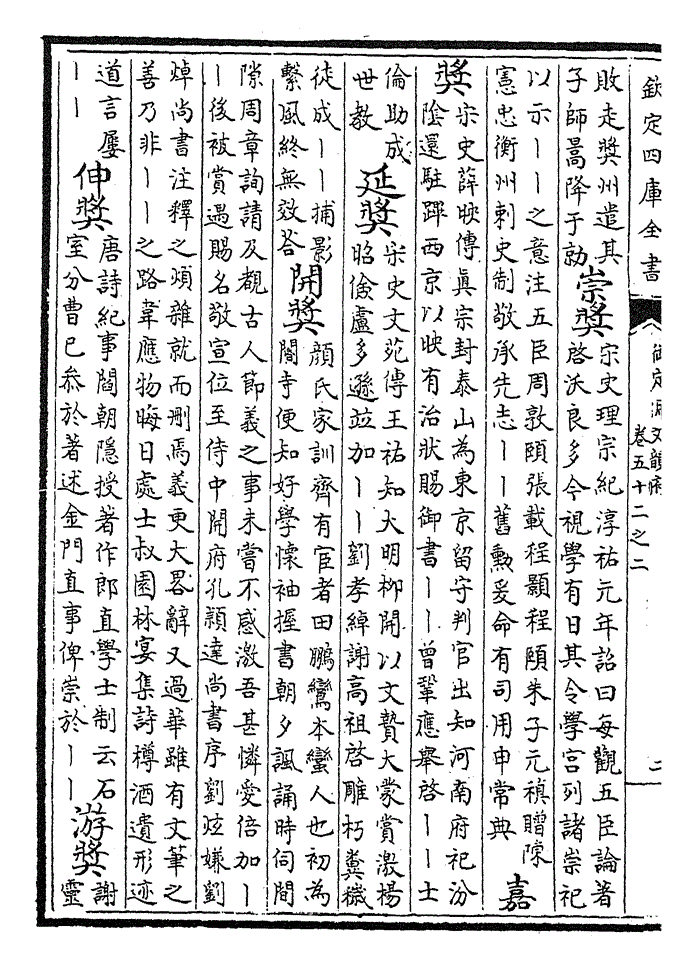 欽定四庫全書
御定佩文韻府
卷五十二之二
二
敗走獎州遣其
子師暠降于勍
崇獎
宋史理宗紀淳祐元年詔曰每觀五臣論著
啓沃良多今視學有日其令學宮列諸崇祀
以示——之意注五臣周敦頤張載程顥程頤朱子元稹贈陳
憲忠衡州刺史制敬承先志——舊勲爰命有司用申常典
嘉
獎
宋史薛映傳真宗封泰山為東京留守判官出知河南府祀汾
陰還駐蹕西京以映有治狀賜御書——曾鞏應舉啓——士
倫助成
世教
延獎
宋史文苑傳王祐知大明柳開以文贄大蒙賞激楊
昭儉盧多遜並加——劉孝綽謝高祖啓雕朽糞穢
徒成——捕影
繫風終無效荅
開獎
顔氏家訓齊有宦者田鵬鸞本蠻人也初為
閽寺便知好學懷袖握書朝夕諷誦時伺間
隙周章詢請及覩古人節義之事未嘗不感激吾甚憐愛倍加—
—後被賞遇賜名敬宣位至侍中開府孔頴達尚書序劉炫嫌劉
焯尚書注釋之煩雜就而刪焉義更大畧辭又過華雖有文筆之
善乃非——之路韋應物晦日處士叔園林宴集詩樽酒遺形迹
道言屢
——
伸獎
唐詩紀事閻朝隱授著作郎直學士制云石
室分曹已叅於著述金門直事俾崇於——
游獎
謝
靈